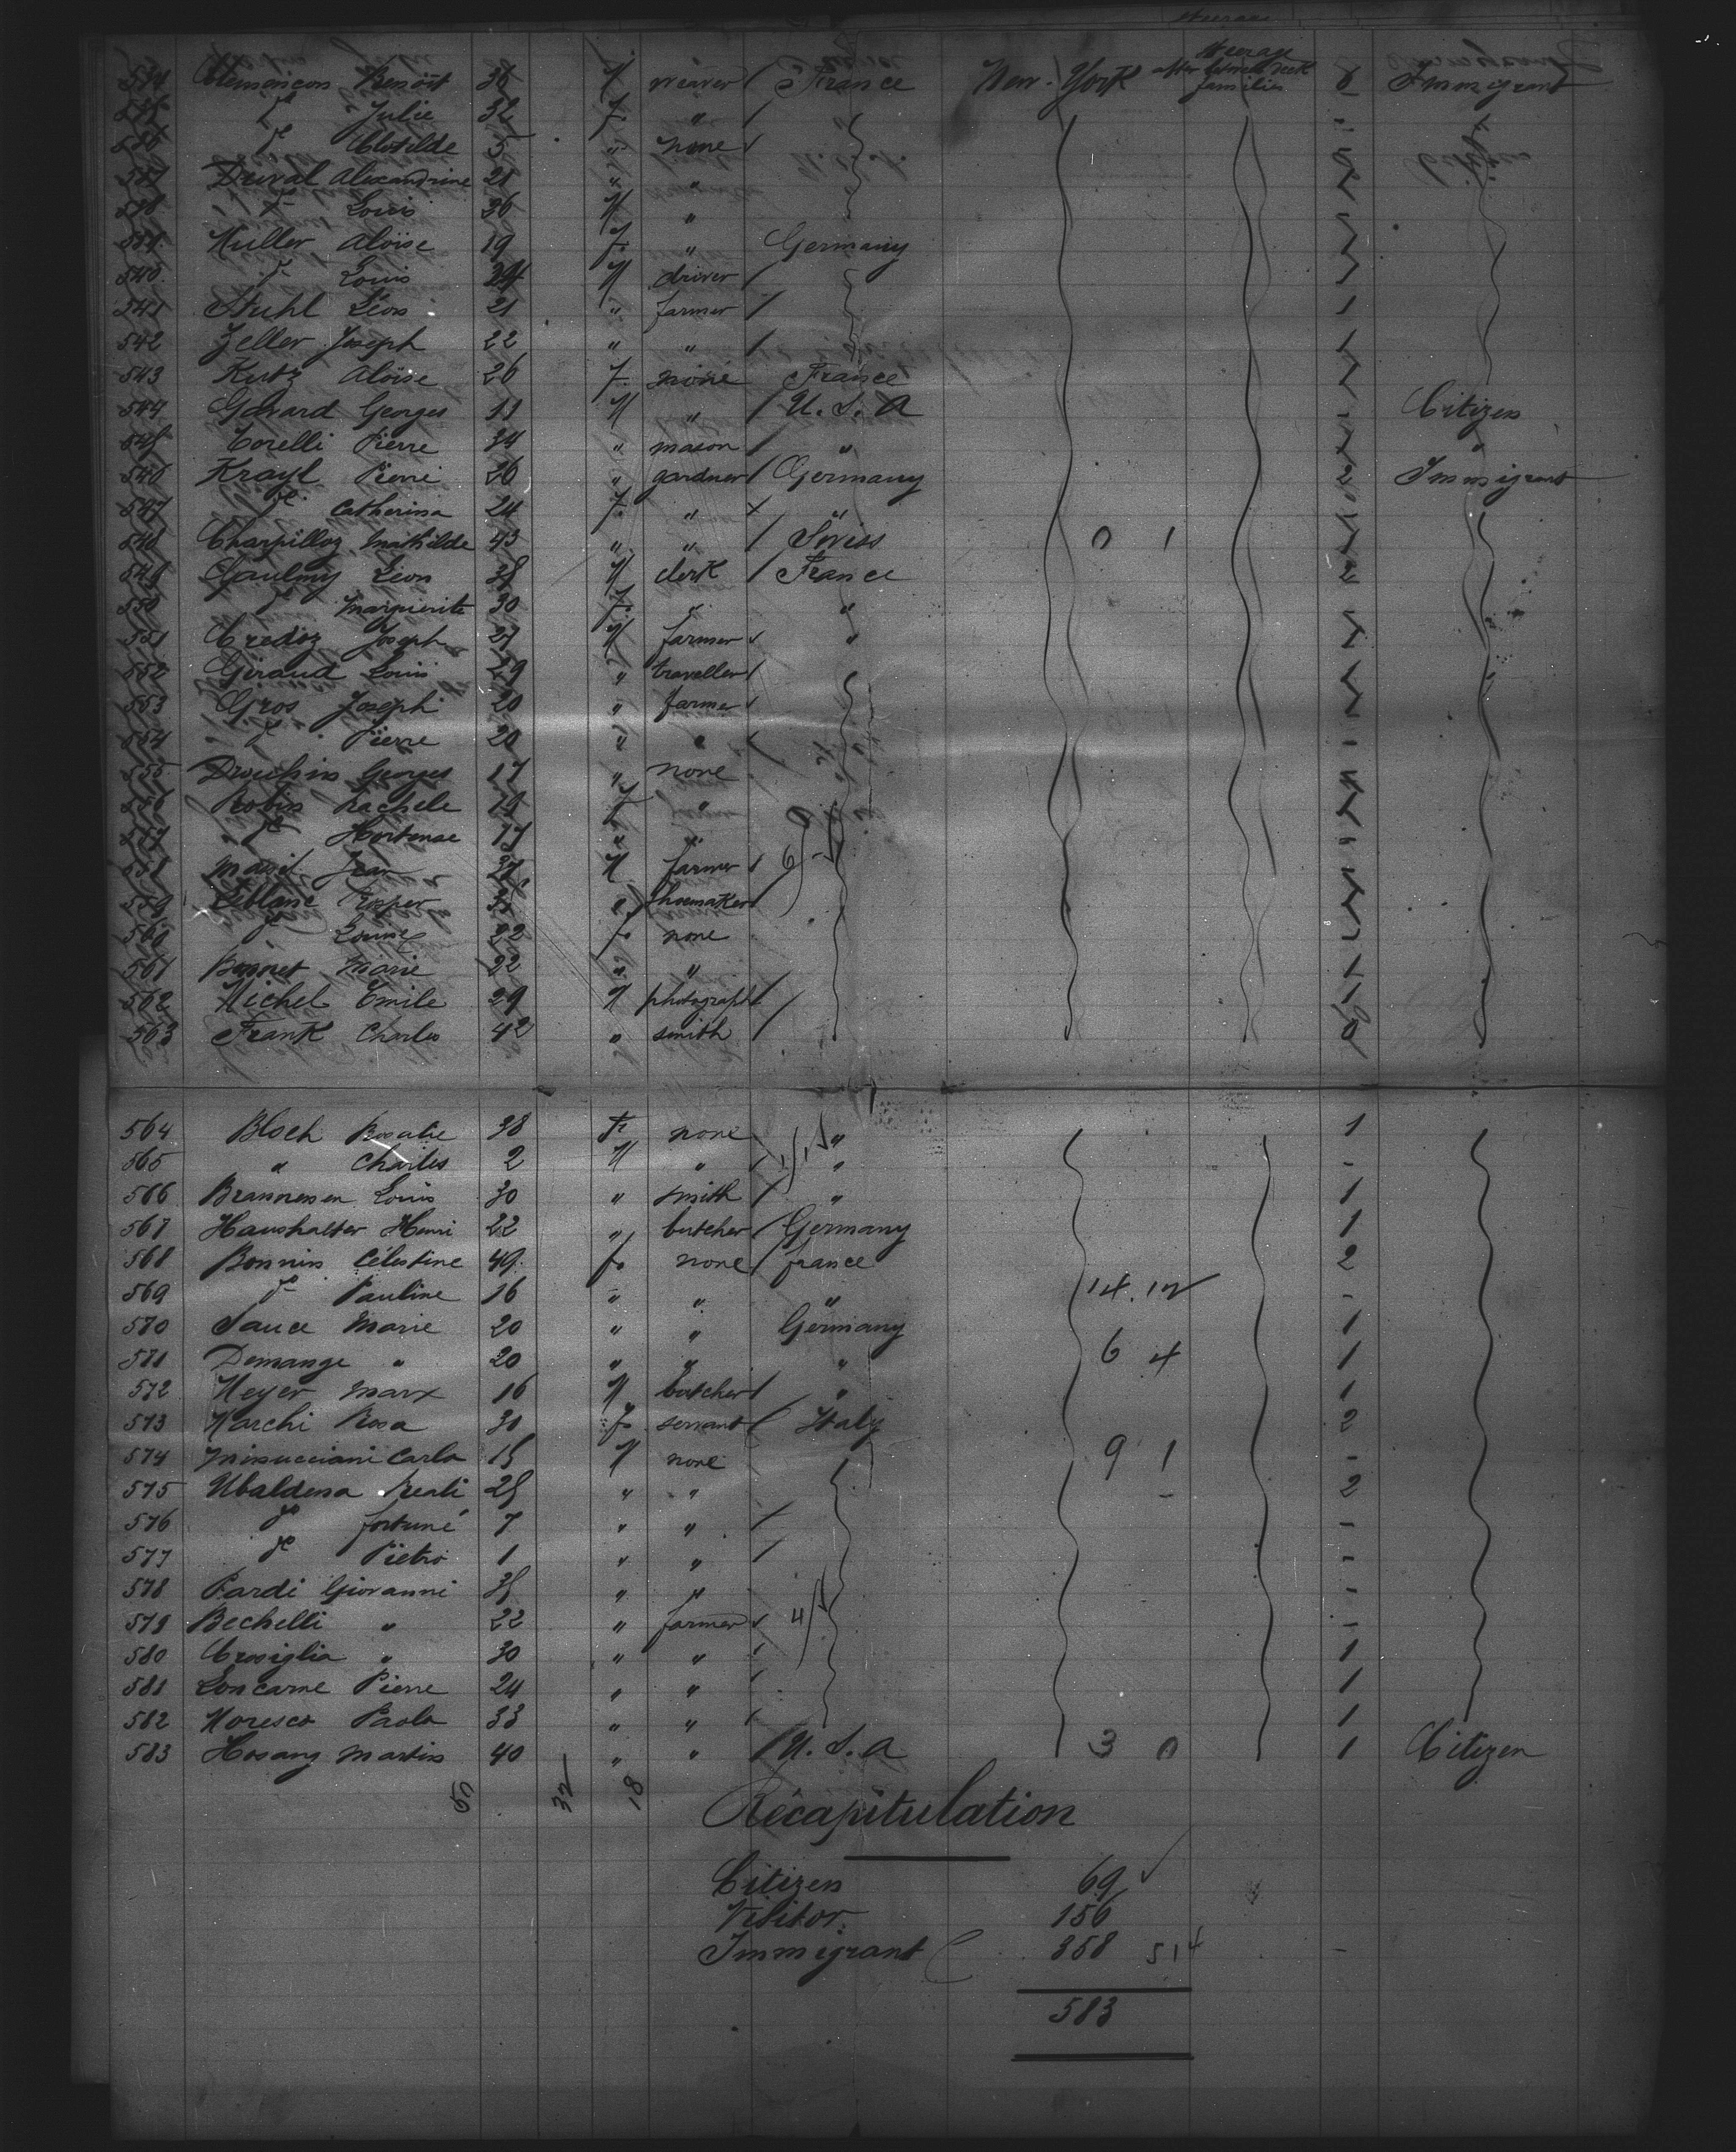 Steerage
534 Clemençon Benoit 36 M weaver / France New-York Steerage after between deck families 6 Immigrant
535 do Julie 32 f. " /
536 do Clotilde 5 " none
537 Duval Alexandrine 21 " "
538 do Louis 36 M "
539 Muller Aloïse 19 f. " Germany
540 do Louis 24 M driver /
541 Stuhl Léon 21 " farmer / 1
542 Zeller Joseph 22 " " / 1
543 Kutz Aloïse 26 f. none France
544 Gavard Georges 11 M " / U. S. A - Citizen
545 Corelli Pierre 34 " mason / " "
546 Krayl Pierre 26 " gardner / Germany 2 Immigrant
547 do Catherina 24 f. " "
548 Charpilloz Mathilde 43 " " / Swiss 0 1
549 Gaulmy Léon 38 M clerk / France 2
550 do Marguerite 30 f. "
551 Credoz Joseph 27 M farmer "
552 Giraud Louis 29 " traveller /
553 Gros Joseph 20 " farmer
554 do Pierre 20 " " -
555 Drouhin Georges 17 " none
556 Robin Rachele 19 f "
557 do Hortense 17 " "
558 Jean 37 M farmer 6
559 Leblanc Prosper 35 " shoemaker /
560 do Louise 22 f. none
561 Bonnet Marie 22 " "
562 Michel Emile 29 M photograph /
563 Frank Charles 42 " smith /
564 Bloch Rosalie 38 F. none " 1
565 " Charles 2 M " " -
566 Brannesen Louis 30 " smith / " 1
567 Haushalter Henri 22 " butcher / Germany 1
568 Bonnin Célestine 49 f. none / france 2
569 do Pauline 16 " " " 14. 12 -
570 Sauce Marie 20 " " Germany 1
571 Demange " 20 " " " 6 4 1
572 Meyer Marx 16 M butcher / " 1
573 Marchi Rosa 30 f. servant Italy 2
574 Minucciani Carlo 15 M none 9 1 -
575 Ubaldena Reali 25 " " - 2
576 do fortuné 7 " " -
577 do Pietro 1 " " / -
578 Pardi Giovanni 35 " " -
579 Bechelli " 22 " farmer 4 -
580 Crosiglia " 30 " " 1
581 Loncarne Pierre 24 " " 1
582 Moresco Paolo 33 " " 1
583 Hosang Martin 40 " " / U. S. A 3 0 1 Citizen
32 18
Récapitulation
Citizen 69
Visitor 156
Immigrant 358 514
583